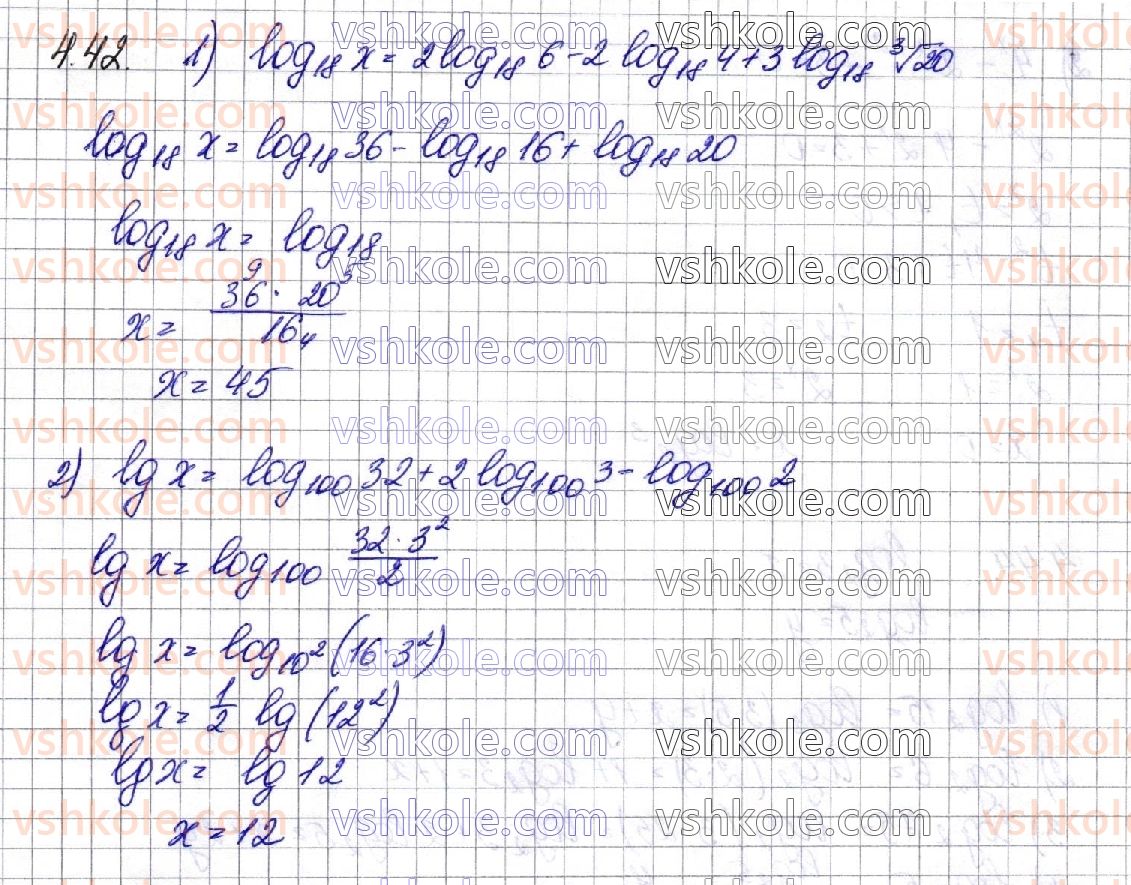 4.42. 1) log₁₈ x = 2 log₁₈ 6 - 2 log₁₈ 4 + 3 log₁₈ ³√20
log₁₈ x = log₁₈ 36 - log₁₈ 16 + log₁₈ 20
log₁₈ x = log₁₈
9 5
36 · 20
x = 16 4
x = 45
2) lg x = log₁₀₀ 32 + 2 log₁₀₀ 3 - log₁₀₀ 2
lg x = log₁₀₀ (32 · 3²)/2
lg x = log₁₀² (16 · 3²)
lg x = 1/2 lg (12²)
lg x = lg 12
x = 12
vshkole.com